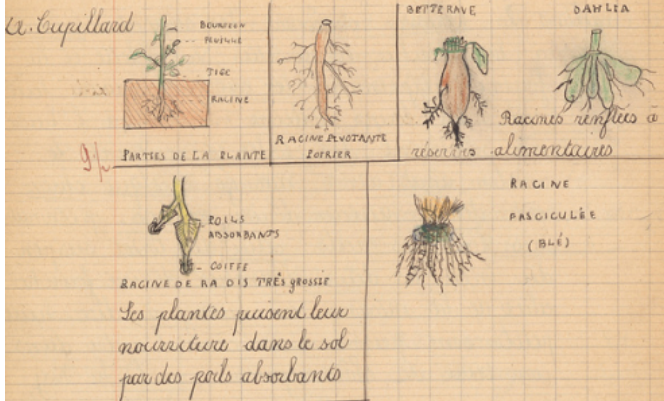 A. Cupillard
BOURGEON
FEUILLE
TIGE
RACINE
PARTIES DE LA PLANTE
RACINE PIVOTANTE
POIRIER
BETTERAVE
DAHLIA
Racines renflées à
réserves alimentaires
9/
POILS
ABSORBANTS
COIFFE
RACINE DE RADIS TRÈS GROSSIE
Les plantes puisent leur
nourriture dans le sol
par des poils absorbants
RACINE
FASCICULÉE
(BLÉ)